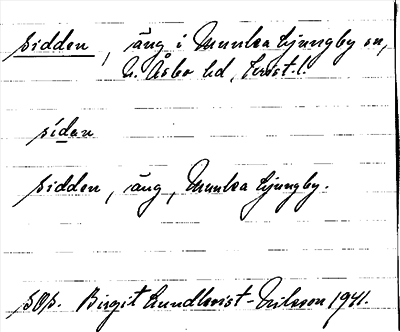 sidden, äng i Munka Ljungby sn,
N. Åsbo hd, Krist. l.
sídan
sidden, äng, Munka Ljungby.
Birgit Lundkvist-Eriksson 1941.